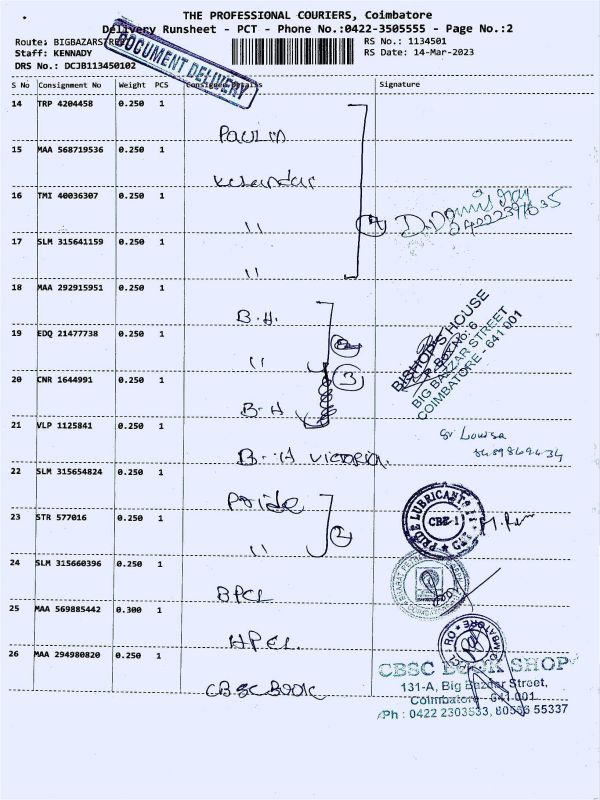 THE PROFESSIONAL COURIERS, Coimbatore
Delivery Runsheet - PCT - Phone No.:0422-3505555 - Page No.:2
Route: BIGBAZARSTREET
RS No.: 1134501
Staff: KENNADY
RS Date: 14-Mar-2023
DRS No.: DCJB113450102
DOCUMENT DELIVERY
S No Consignment No Weight PCS Consignee Details Signature
14 TRP 4204458 0.250 1
15 MAA 568719536 0.250 1
16 TMI 40036307 0.250 1
"
17 SLM 315641159 0.250 1
"
4
18 MAA 292915951 0.250 1
B.H.
19 EDQ 21477738 0.250 1
"
20 CNR 1644991 0.250 1
B-H
3
BISHOP'S HOUSE
P. Box No: 6
BIG BAZZAR STREET
COIMBATORE - 641 001
21 VLP 1125841 0.250 1
B-H VICTORIA
Sr Lowisa
22 SLM 315654824 0.250 1
Pride
23 STR 577016 0.250 1
"
2
PRIDE LUBRICANT
CBE-1
24 SLM 315660396 0.250 1
BPCL
25 MAA 569885442 0.300 1
HPCL
26 MAA 294980820 0.250 1
CBSC Book
CBSC BOOK SHOP
131-A, Big Bazaar Street,
Coimbatore - 641 001
Ph : 0422 2303533, 80566 55337